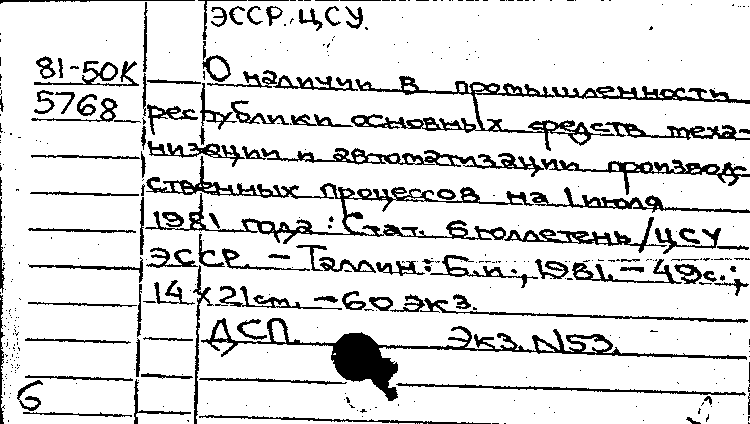 ЭССР. ЦСУ.
81-50К О наличии в промышленности
5768 республики основных средств меха-
низации и автоматизации производ-
ственных процессов на 1 июля
1981 года: Стат. бюллетень/ЦСУ
ЭССР. - Таллин: Б.и., 1981. - 49с.;
14 х 21 cm. - 60 экз.
ДСП. Экз. N53.
6